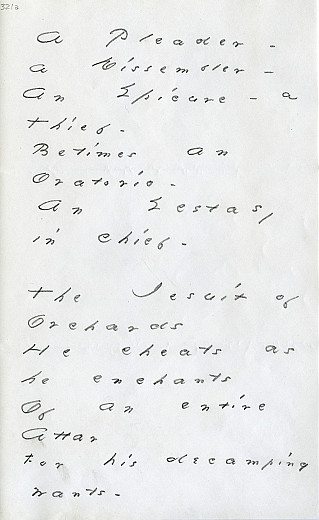 321a
A Pleader -
a Dissembler -
An Epicure - a
thief -
Betimes an
Oratorio -
An Ecstasy
in chief -
The Jesuit of
Orchards
He cheats as
he enchants
Of an entire
Attar
For his decamping
wants -